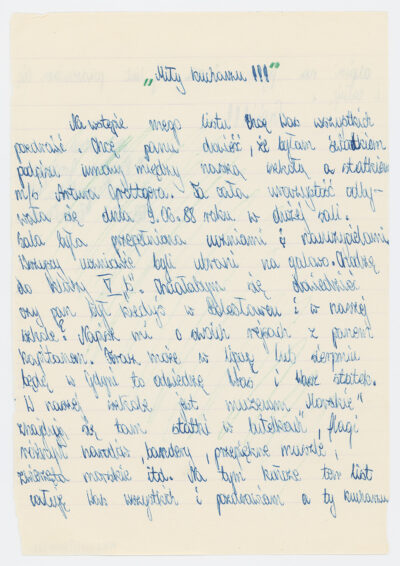 „Miły kucharzu !!!"
Na wstępie mego listu chcę Was wszystkich
pozdrowić. Chcę panu donieść, że byłam świadkiem
podpisu umowy między naszą szkołą a statkiem
m/s Artura Grottgera. Ta cała uroczystość odby-
wała się dnia 9.06.88 roku w dużej sali.
Sala była przepełniona uczniami i nauczycielami.
Wszyscy uczniowie byli ubrani na galowo. Chodzę
do klasy V „c". Chciałabym się dowiedzieć
czy pan był kiedyś w Bolesławcu i w naszej
szkole? Napisz mi o swoich rejsach z panem
kapitanem. Oraz może w lipcu lub sierpniu
będę w Gdyni to odwiedzę Was i Wasz statek.
W naszej szkole jest muzeum „Morskie"
znajdują się tam statki w butelkach, flagi
różnych narodów bandery, przepiękne muszle,
zwierzęta morskie itd. Na tym kończę ten list
całuję Was wszystkich i pozdrawiam a ty kucharzu